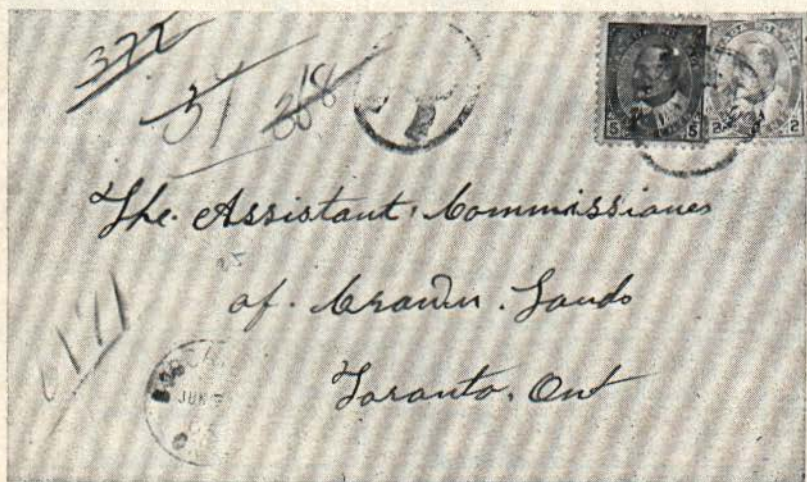 372
37 368
5 5 2 2
The Assistant Commissioner
of Crown Lands
Toronto, Ont
JUN